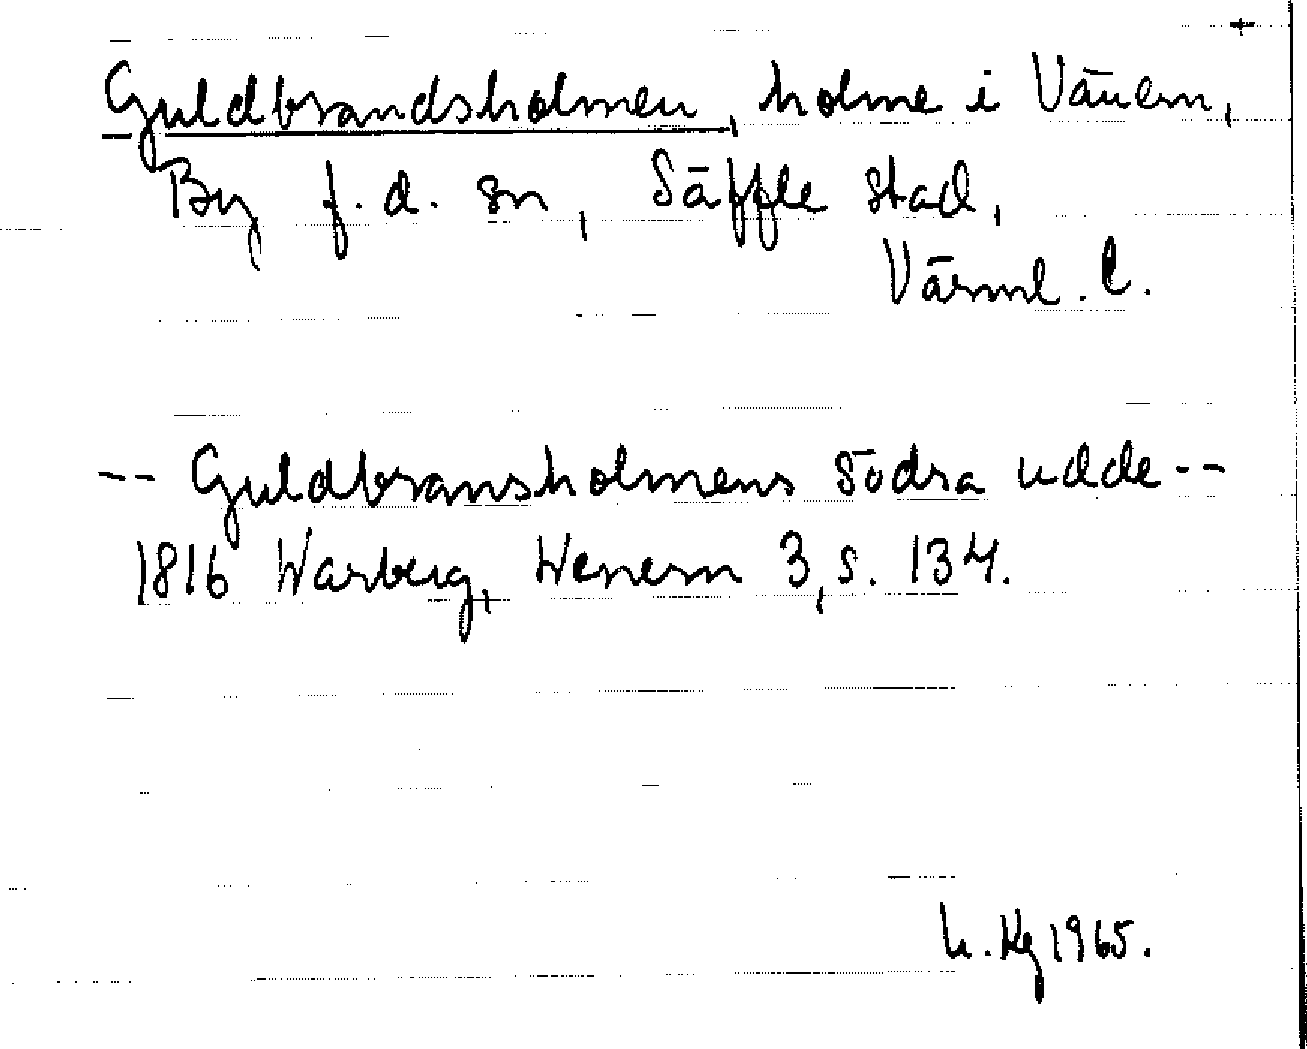 Guldbrandsholmen, holme i Vänern,
By f.d. sn, Säffle stad,
Värml. l.
-- Guldbransholmens södra udde --
1816 Warberg, Wenern 3, s. 134.
h. Kg 1965.